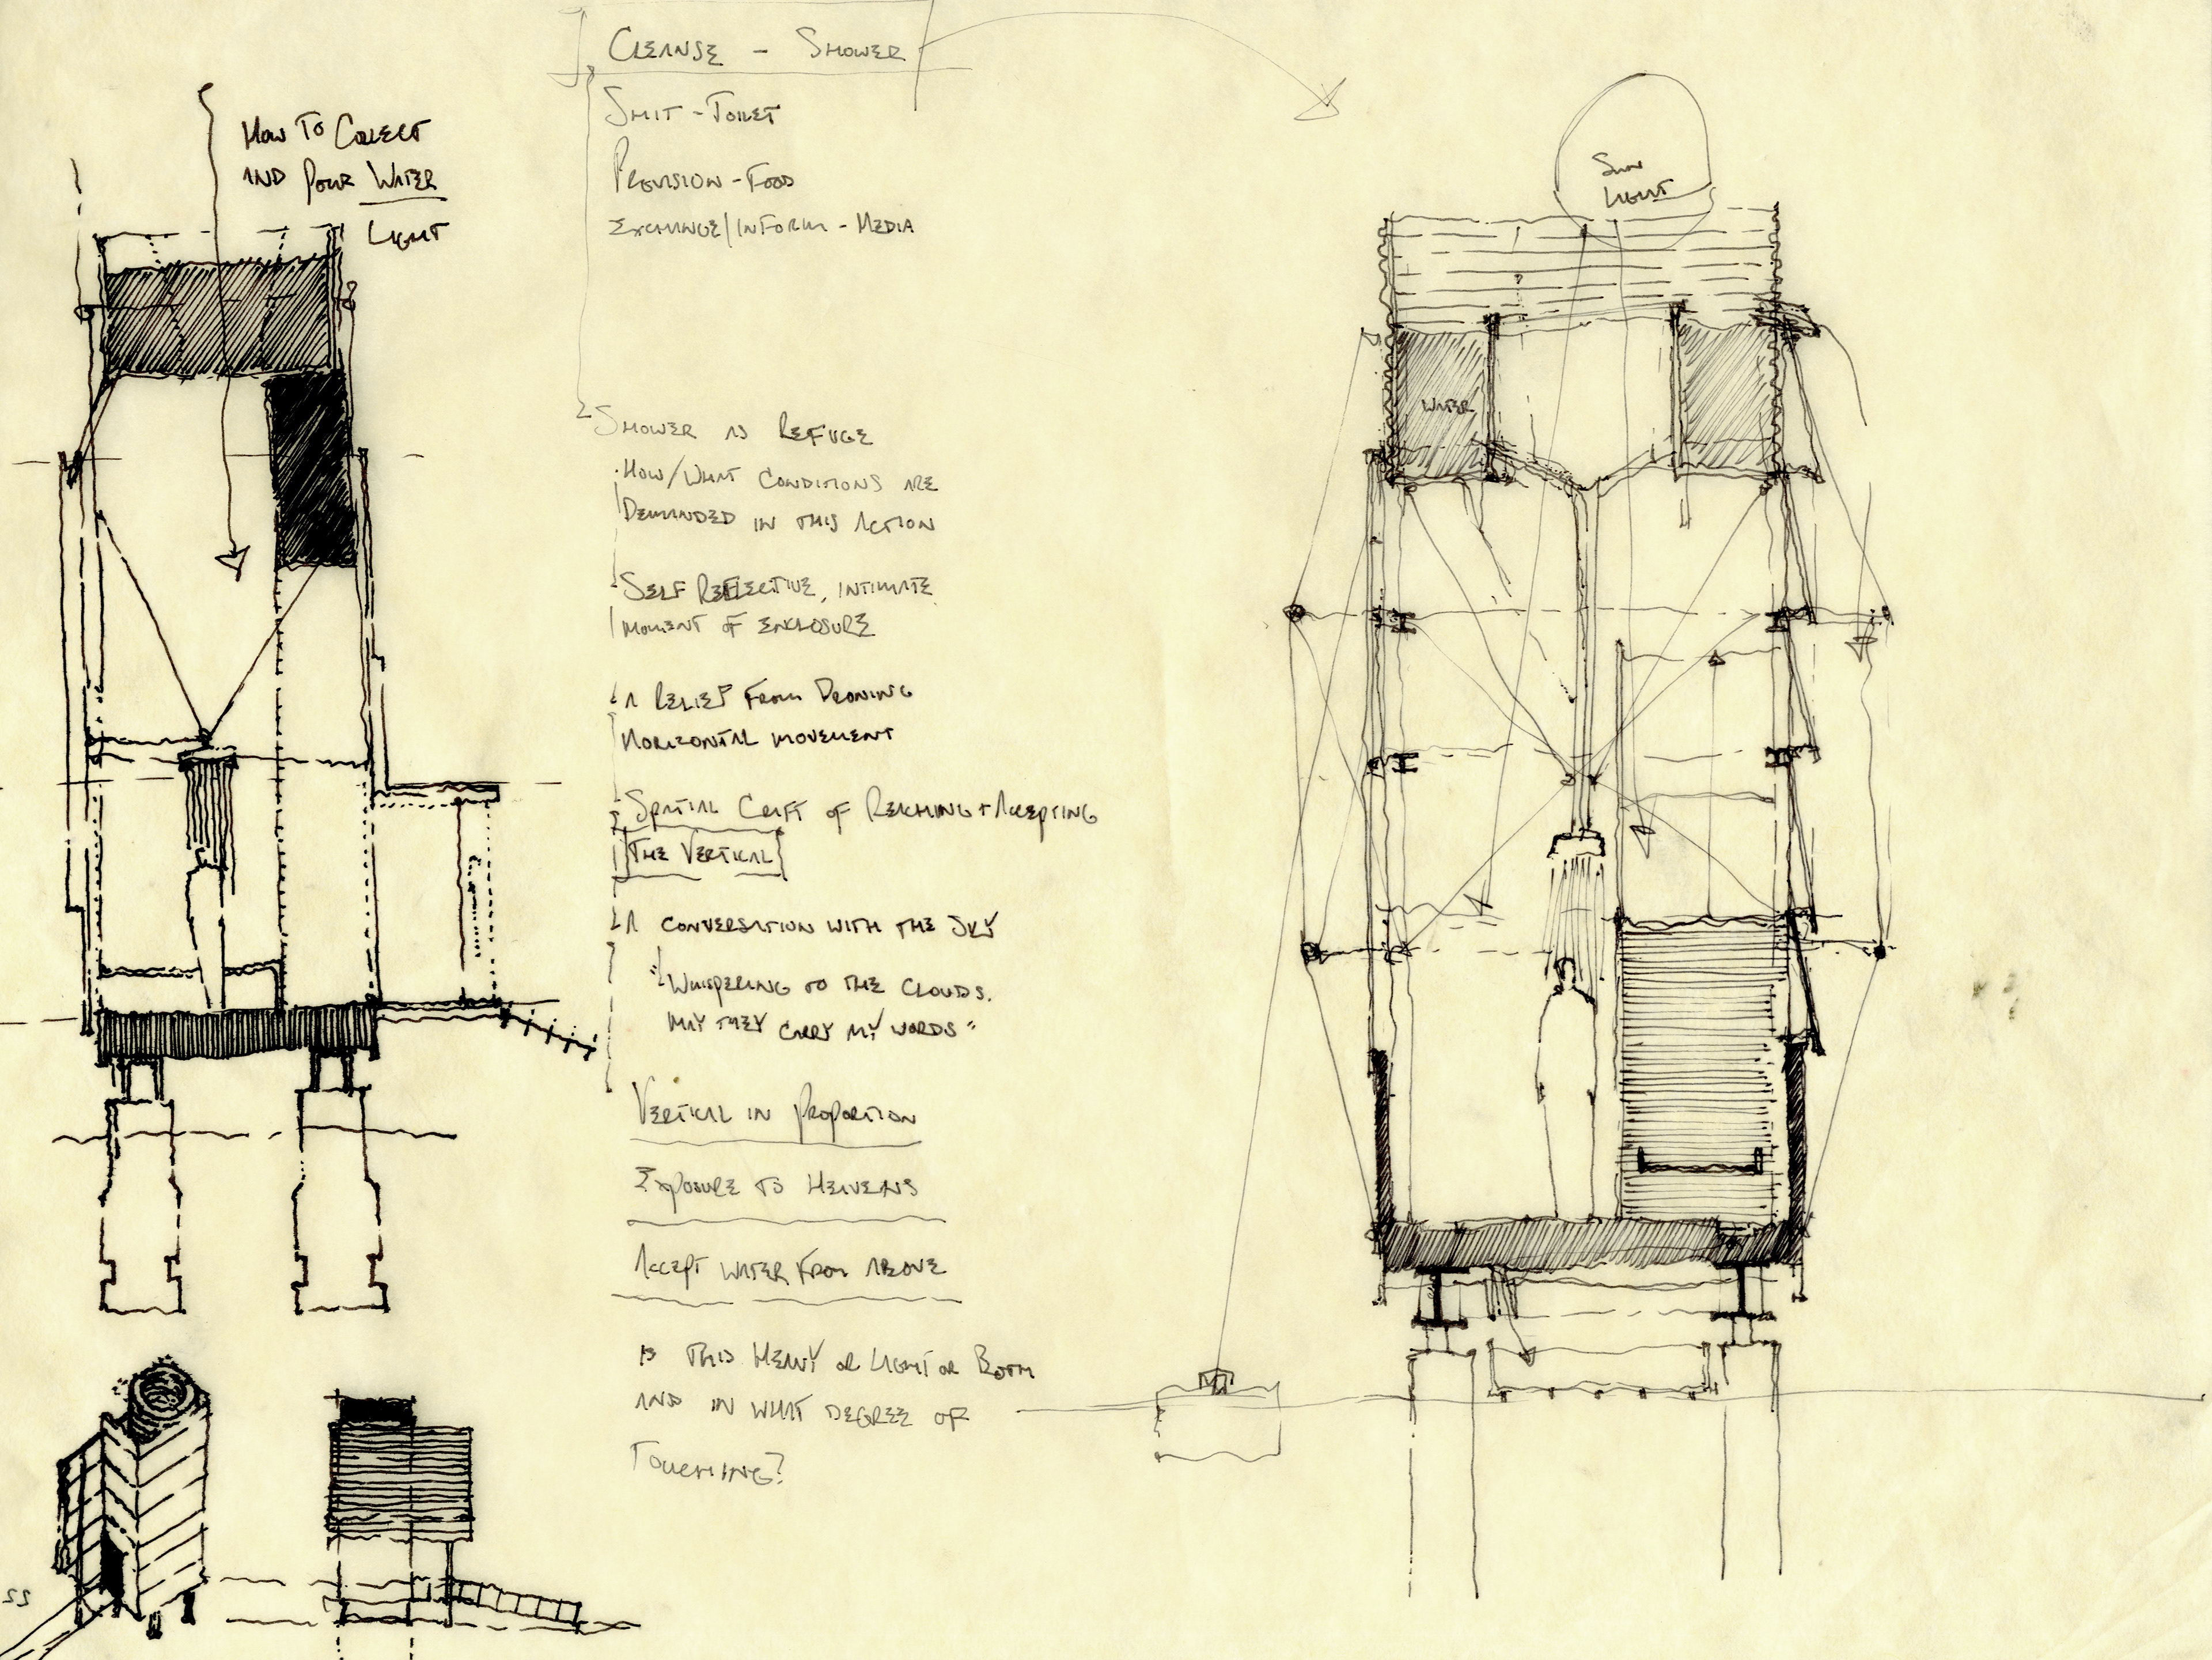 HOW TO COLLECT
AND POUR WATER
LIGHT
CLEANSE - SHOWER
SHIT - TOILET
PROVISION - FOOD
EXCHANGE/INFORM - MEDIA
SHOWER AS REFUGE
· HOW/WHAT CONDITIONS ARE
DEMANDED IN THIS ACTION
- SELF REFLECTIVE, INTIMATE
MOMENT OF ENCLOSURE
- A RELIEF FROM DRONING
HORIZONTAL MOVEMENT
- SPATIAL CRAFT OF REACHING + ACCEPTING
THE VERTICAL
- A CONVERSATION WITH THE SKY
"WHISPERING TO THE CLOUDS.
MAY THEY CARRY MY WORDS"
VERTICAL IN PROPORTION
EXPOSURE TO HEAVENS
ACCEPT WATER FROM ABOVE
IS THIS HEAVY OR LIGHT OR BOTH
AND IN WHAT DEGREE OF
TOUCHING?
SUN
LIGHT
WATER